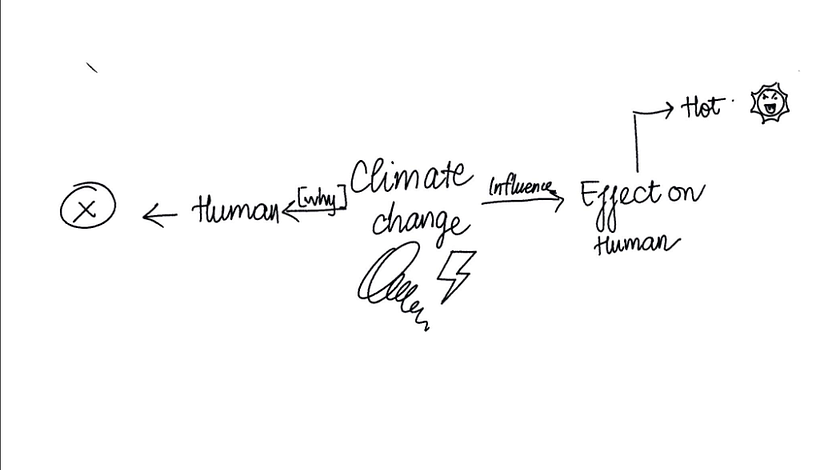 Hot
Climate
change
[why]
Human
X
Influence
Effect on
Human